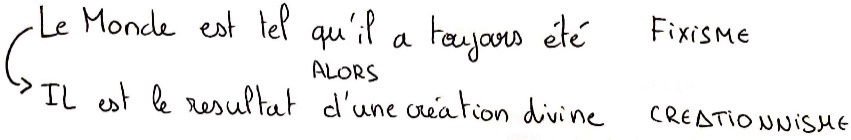 Le Monde est tel qu'il a toujours été FIXISME
ALORS
IL est le resultat d'une création divine CREATIONNISME